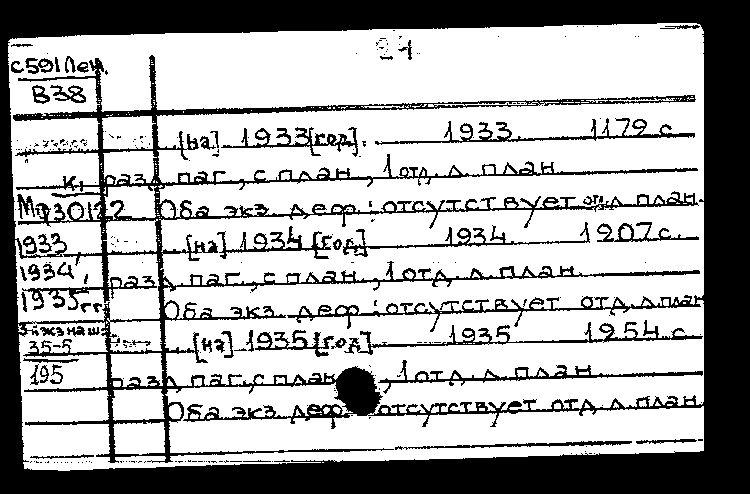 24
С591Лен.
В38
[на] 1933[год]. 1933. 1179 с
К1 разд. паг., с план, 1 отд. л. план
МФ30122 Оба экз. деф: отсутствует отд. л. план.
1933, [на] 1934 [год] 1934. 1207 с.
1934, разд. паг., с план., 1 отд. л. план.
1935 гг Оба экз. деф: отсутствует отд. л. план
3-й экз наш: [на] 1935 [год] 1935 1254 с
35-5
195 разд. паг., с план , 1 отд. л. план
Оба экз. деф отсутствует отд. л. план.